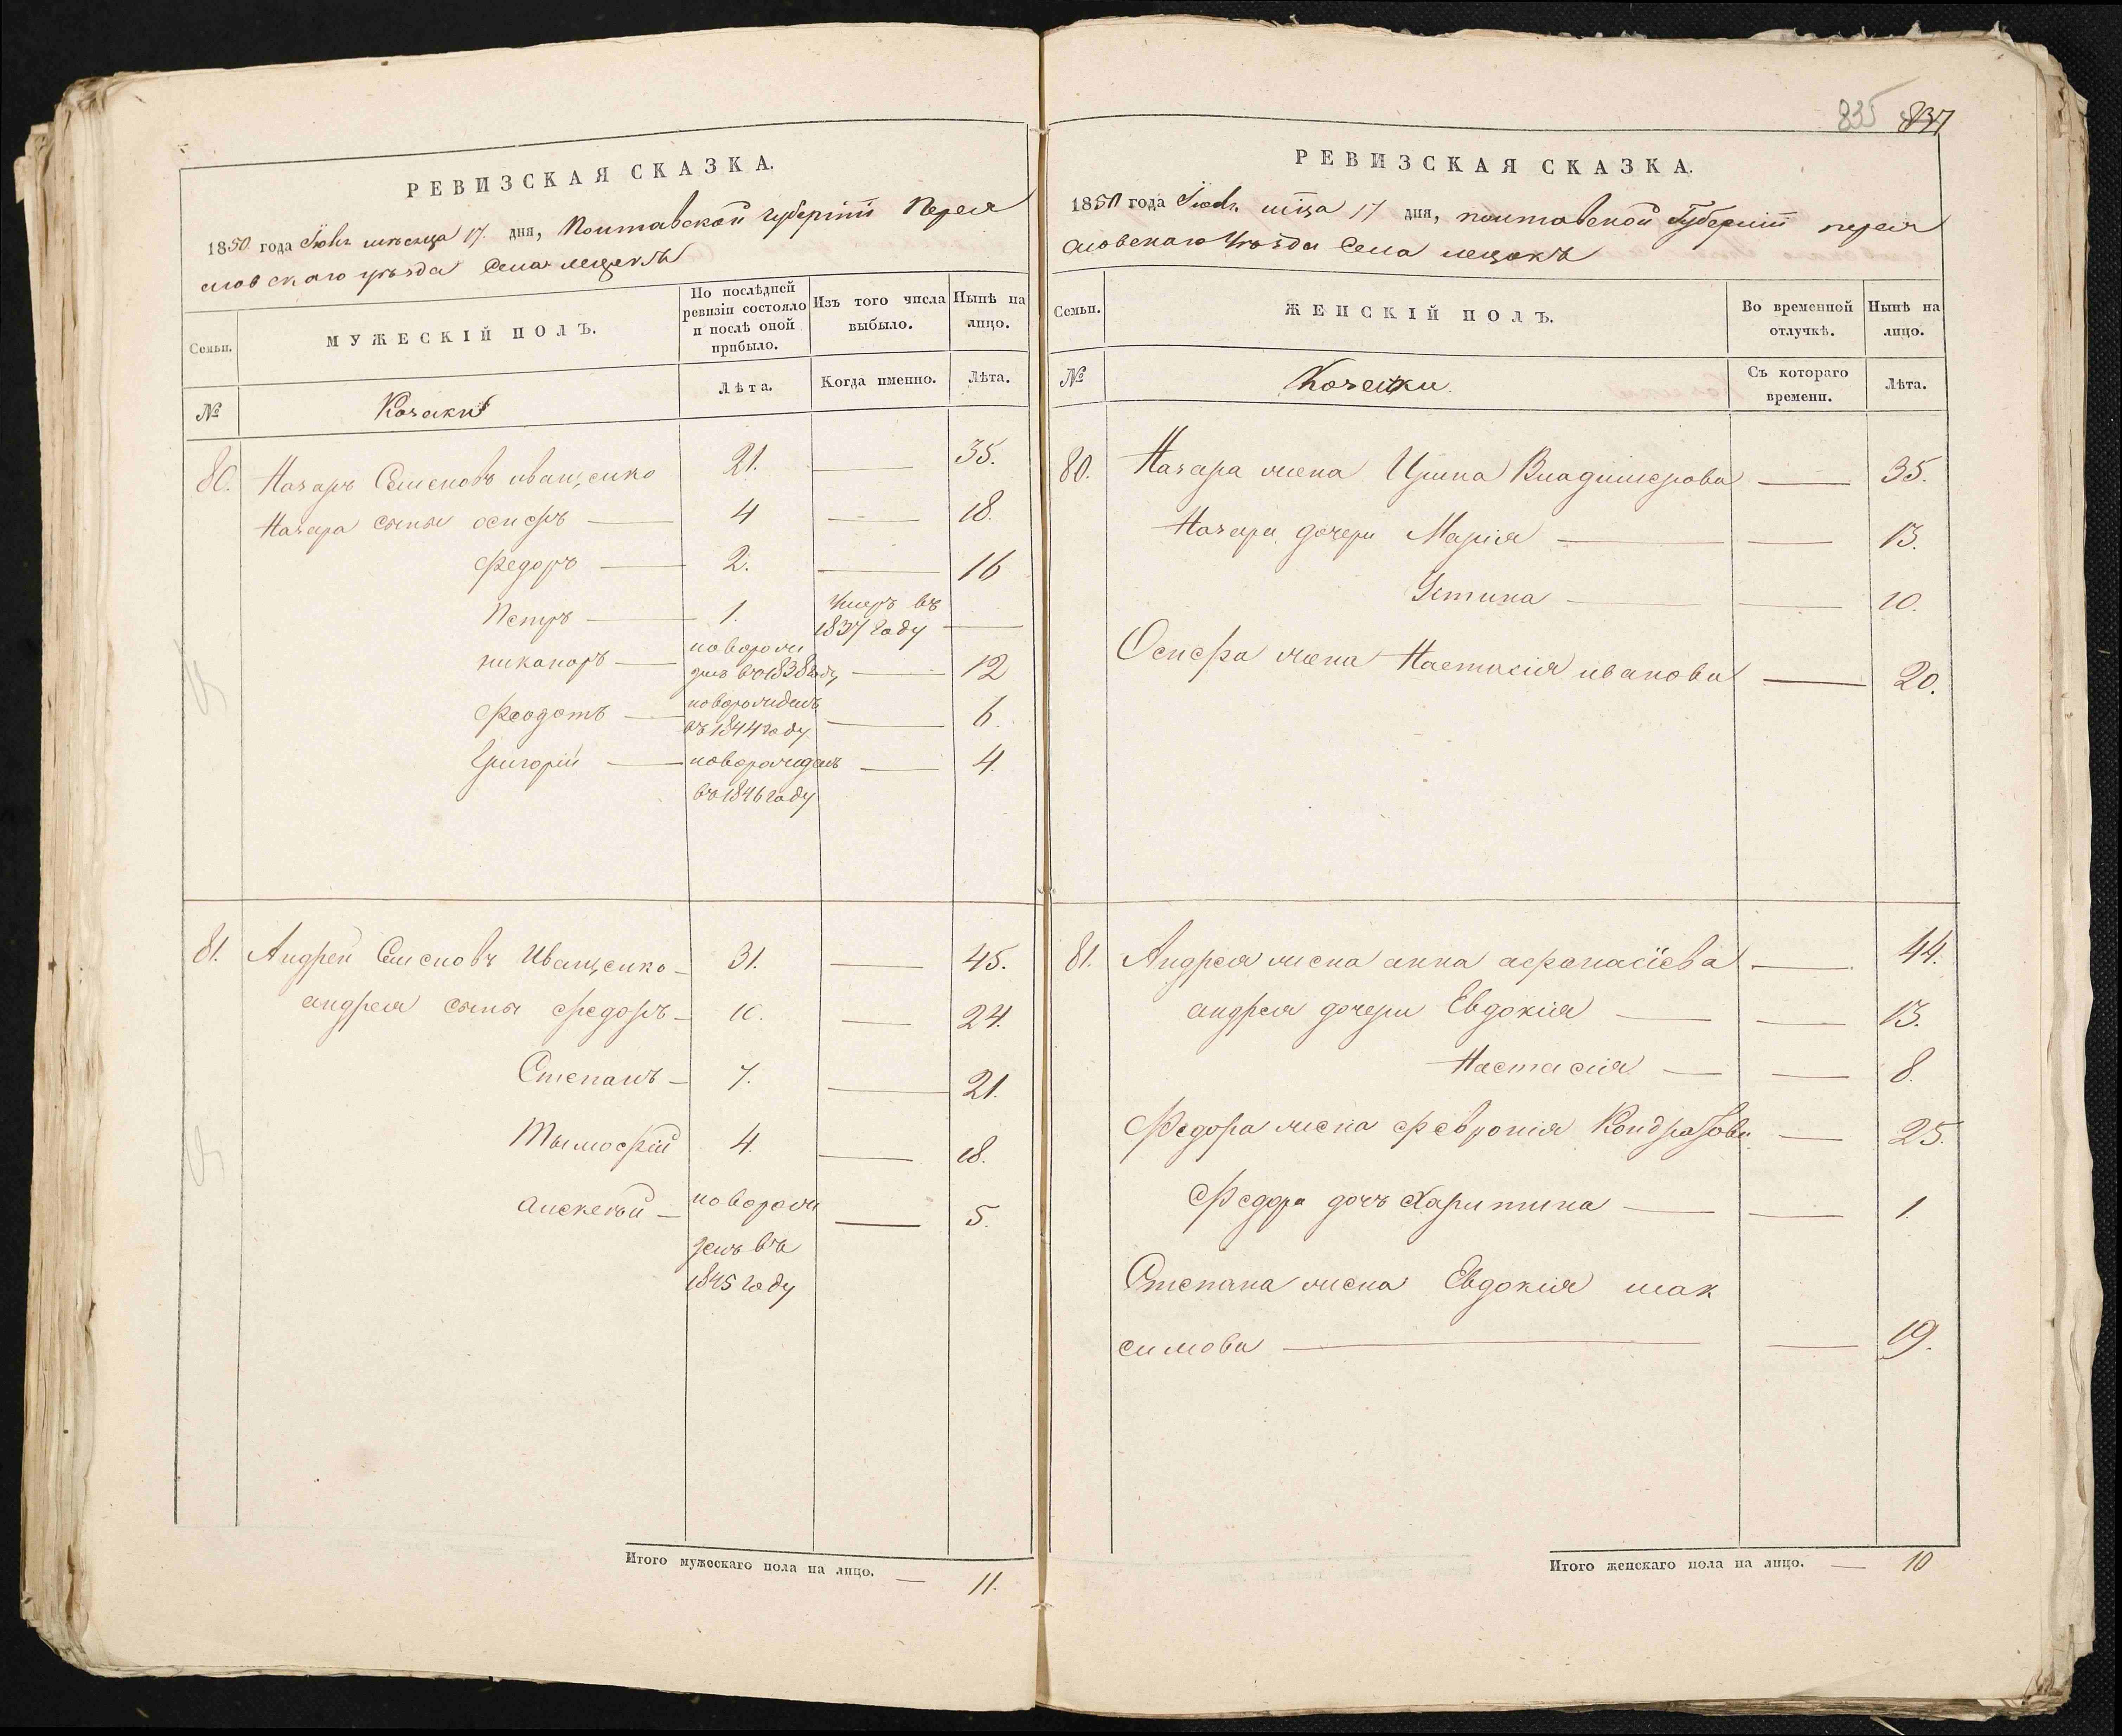 РЕВИЗСКАЯ СКАЗКА.
1850 года Июнь месяца 17. дня, Полтавской губернiи Перея
словскаго уезда Села лецокъ
Семьи.
МУЖЕСКIЙ ПОЛЪ.
По послѣдней ревизiи состояло и послѣ оной прибыло.
Изъ того числа выбыло.
Нынѣ на лицо.
№
Козаки
Лѣта.
Когда именно.
Лѣта.
80. Назаръ Семеновъ иващенко 21. — 35.
Назара сыны осифъ — 4 — 18.
Федоръ — 2. — 16
Петръ — 1. Умеръ въ 1837 году —
никаноръ — новорожденъ въ 1838 году — 12
Феодотъ — новорожденъ въ 1844 году — 6.
Григорiй — новорожденъ въ 1846 году — 4.
81. Андрей Семеновъ Иващенко — 31. — 45.
андрея сыны федоръ — 10. — 24.
Степанъ — 7. — 21.
Тымофiй 4. — 18.
алексей — новорожденъ въ 1845 году — 5.
Итого мужескаго пола на лицо. — 11.
835 837
РЕВИЗСКАЯ СКАЗКА.
1850 года Июнь мца 17 дня, полтавской Губернiи перея
словскаго Уезда Села лецокъ
Семьи.
ЖЕНСКIЙ ПОЛЪ.
Во временной отлучкѣ.
Нынѣ на лицо.
№
Козачки.
Съ котораго времени.
Лѣта.
80. Назара жена Ирина Владимерова — 35.
Назара дочери Марiя — — 13.
Устина — — 10.
Осифа жена Настасiя иванова — 20.
81. Андрея жена анна афанасiева — 44.
андрея дочери Евдокiя — — 13.
Настасiя — — 8.
Федора жена февронiя Кондратова — 25.
Федора дочъ Харитина — — 1.
Степана жена Евдокiя мак
симова — — 19.
Итого женскаго пола на лицо. — 10